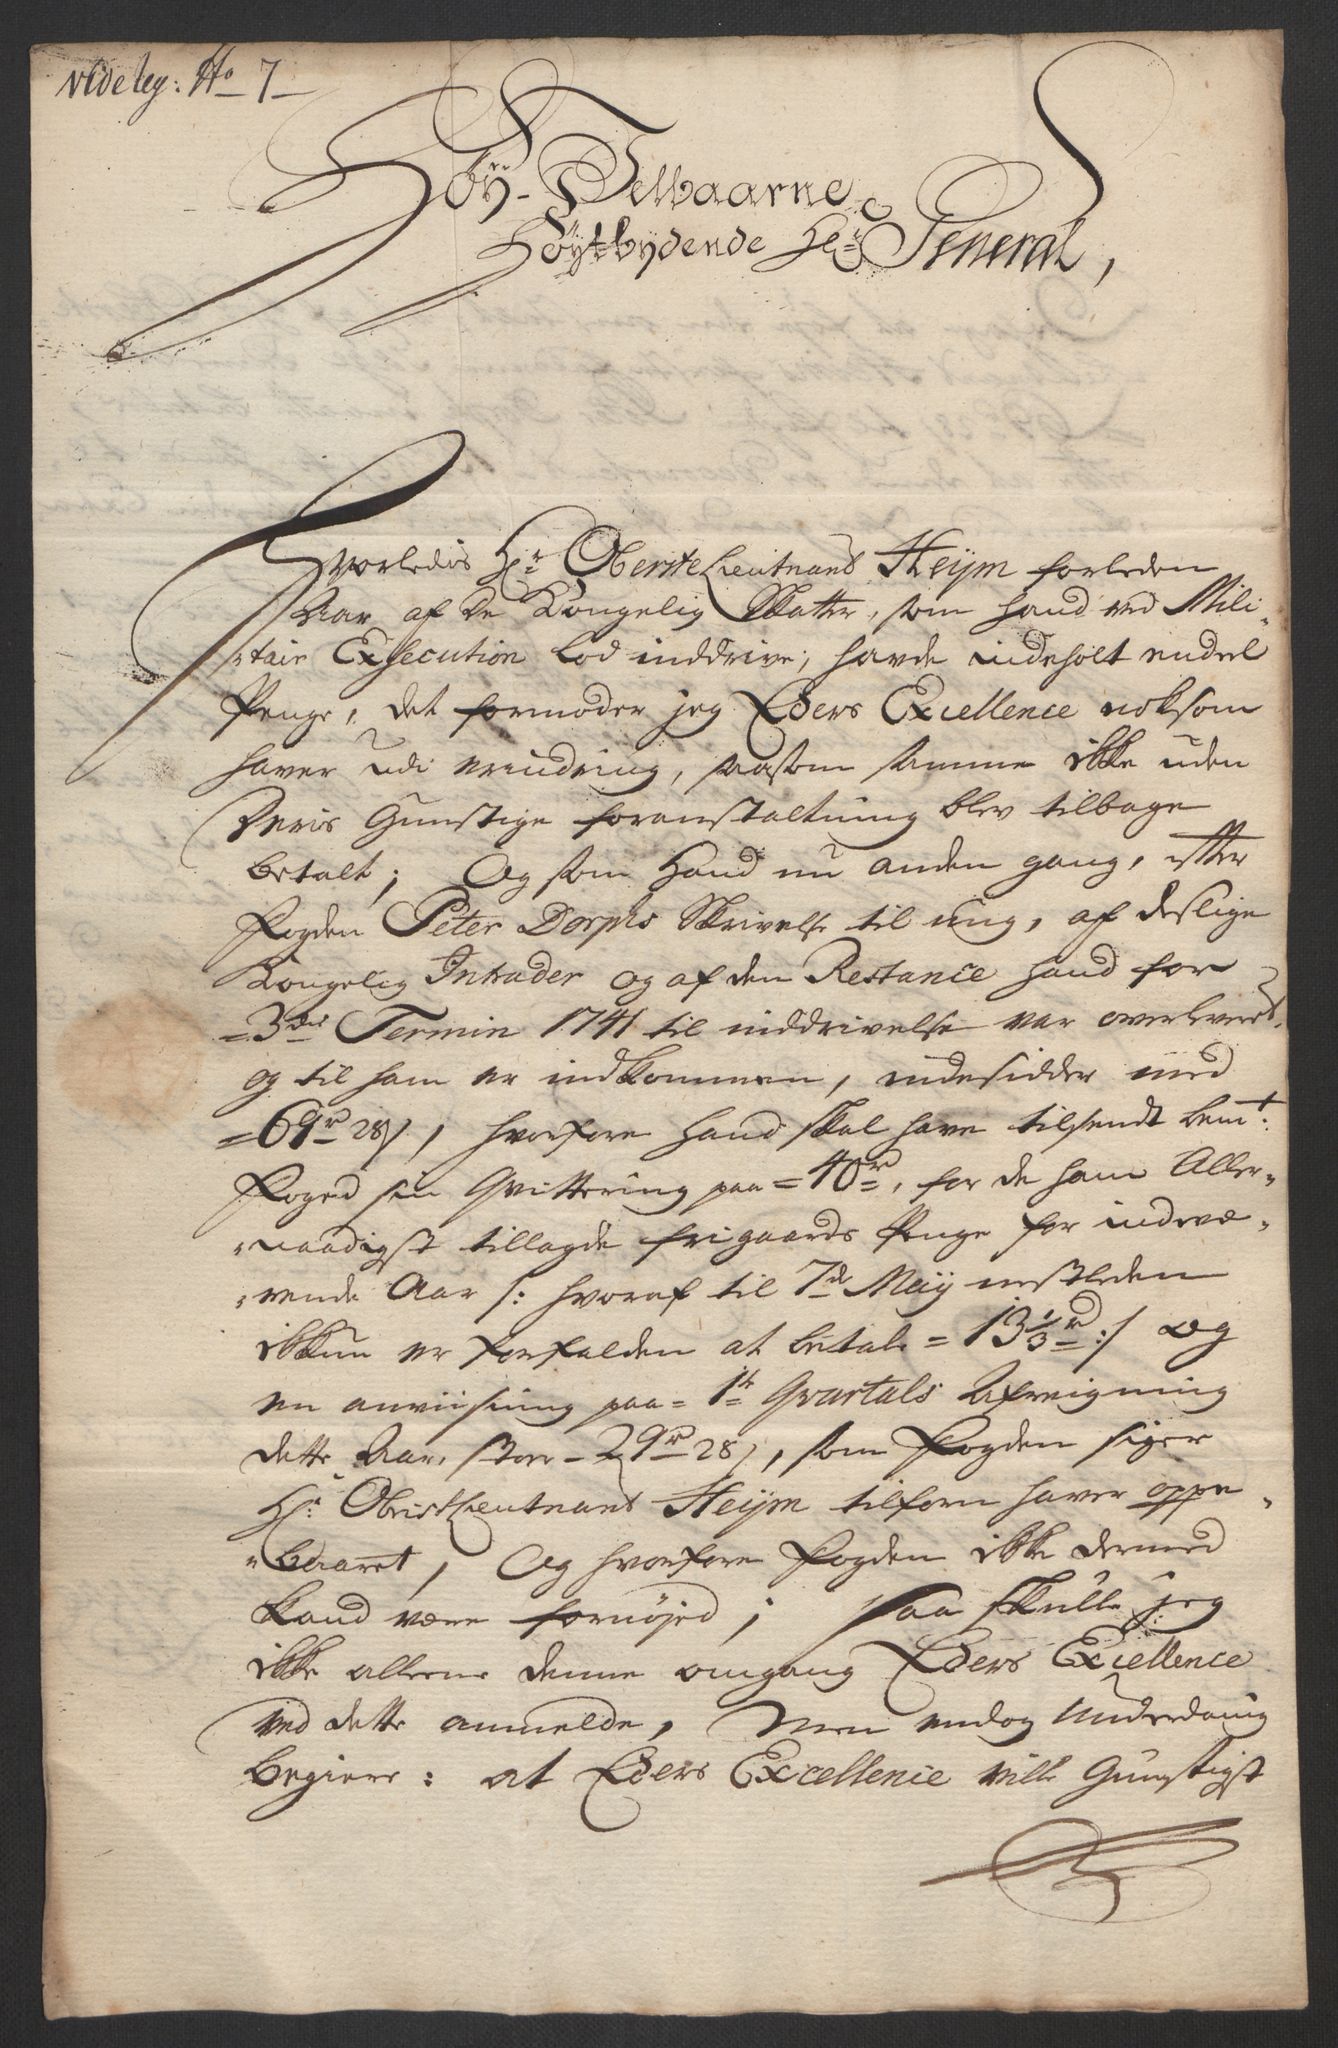 Videleg: No 7
Høy-Velbaarne
Høytbydende Hr General,
Hvorledis Hr Oberste Lieutnant Heÿm forleden
Aar af de Kongelig Skatter, som hand ved Mili-
-tair Exsecution lod inddrive, hafde indeholt endeel
Penge, det formoder jeg Eders Excellence noksom
haver udi erindring, saasom samme ikke uden
Deris Gunstige foranstaltning blev tilbage
betalt; Og som Hand nu anden gang, efter
Fogden Peter Dorphs Skrivelse til mig, af deslige
Kongelig Intrader og af den Restance hand for
=3die Termin 1741 til inddrivelse var overleveret,
og til ham er indkommen, indesidder med
=69rd 28s, hvorfore Hand skal have tilsendt bemt:
Foged sin Qvittering paa =40rd=, for de ham Aller-
-naadigst tillagde frigaards Penge for indevæ-
-rende Aar /: hvoraf til 7de Maÿ nestleden
ikkun er forfalden at betale =13 1/3rd :/ og
en anviisning paa =1te Qvartals Afreigning
dette Aar, stor =29rd 28s, som Fogden siger
Hr Obristlieutnant Heÿm tilforn haver oppe-
-baaret, Og hvorfore Fogden ikke dermed
kand være fornøjed; saa skulle jeg
ikke alleene denne omgang Eders Excellence
ved dette anmelde, Men endog Underdanig
begiere: at Eders Excellence ville Gunstigst